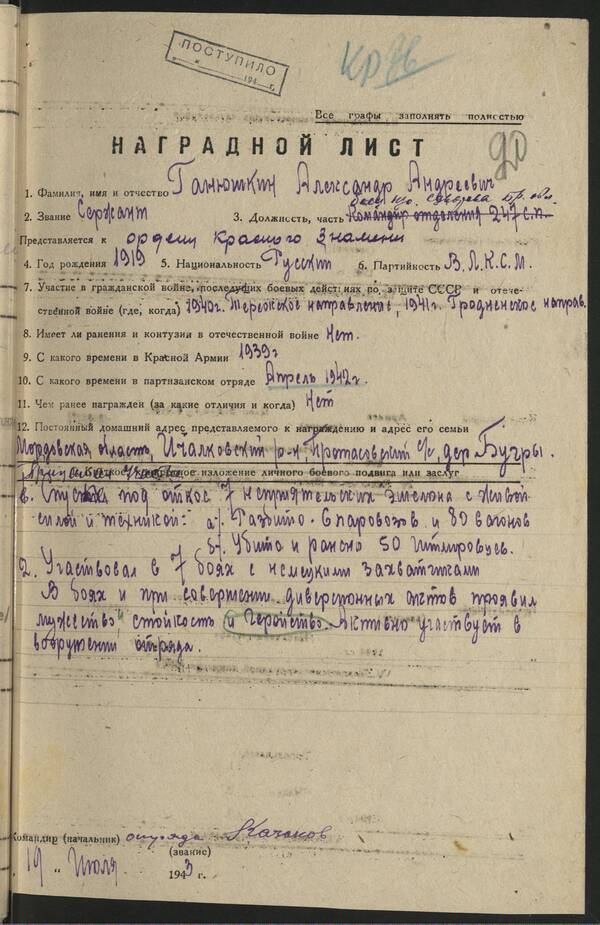 ПОСТУПИЛО
" " 194 г.
Все графы заполнять полностью
НАГРАДНОЙ ЛИСТ
1. Фамилия, имя и отчество Ганюшкин Александр Андреевич
2. Звание Сержант 3. Должность, часть Командир отделения 247 с.п.
Представляется к ордену Красного Знамени
4. Год рождения 1919 5. Национальность Русский 6. Партийность В.Л.К.С.М.
7. Участие в гражданской войне, последующих боевых действиях по защите СССР и отече-
ственной войне (где, когда) 1940г. направление, 1941г. Гродненское направ.
8. Имеет ли ранения и контузии в отечественной войне Нет.
9. С какого времени в Красной Армии 1939г
10. С какого времени в партизанском отряде Апрель 1942г.
11. Чем ранее награжден (за какие отличия и когда) Нет
12. Постоянный домашний адрес представляемого к награждению и адрес его семьи
Мордовская область, Ичалковский р-н, Протасовский с/с, дер Бугры.
Краткое, конкретное изложение личного боевого подвига или заслуг
под откос 7 неприятельских эшелона с живой
силой и техникой: а/. Разбито. 8 паровозов и 80 вагонов
б/. Убито и ранено 50 Гитлеровцев.
2. Участвовал в 7 боях с немецкими захватчиками
В боях и при совершении диверсионных актов проявил
мужество, стойкость и Геройство. Активно участвует в
вооружении отряда.
Командир (начальник) отряда
(звание)
19 " Июля 1943 г.